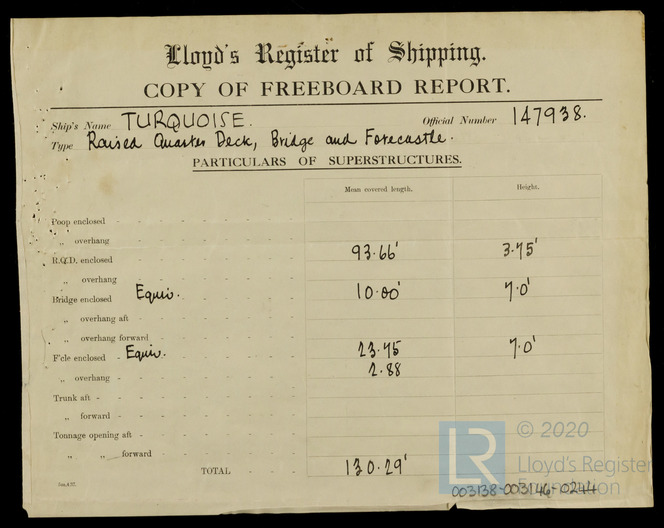 Lloyd's Register of Shipping.
COPY OF FREEBOARD REPORT.
Ship's Name TURQUOISE. Official Number 147938.
Type Raised Quarter Deck, Bridge and Forecastle.
PARTICULARS OF SUPERSTRUCTURES.
Mean covered length. Height.
Poop enclosed
„ overhang
R.Q.D. enclosed 93.66' 3.75'
„ overhang
Bridge enclosed Equiv. 10.00' 7.0'
„ overhang aft
„ overhang forward
F'cle enclosed Equiv. 23.75 7.0'
„ overhang 2.88
Trunk aft
„ forward
Tonnage opening aft
„ „ forward
TOTAL 130.29'
LR © 2020
Lloyd's Register
Foundation
003138-003146-0244